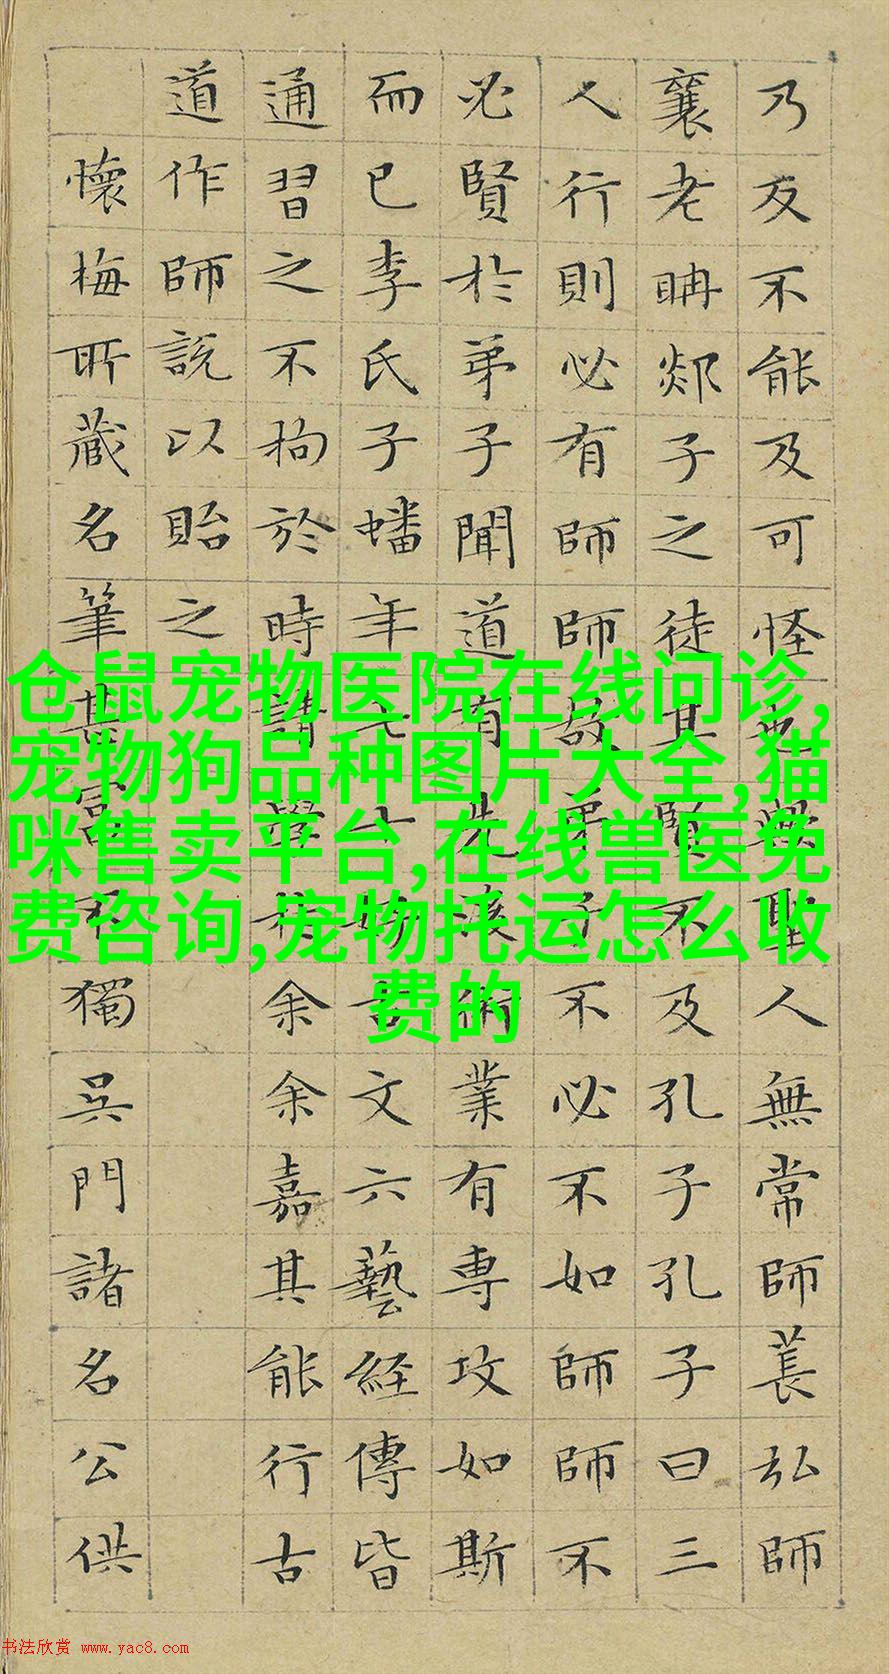 乃反不能及可怪也歟聖人無常師萇弘師
襄老聃郯子之徒其賢不及孔子孔子曰三
人行則必有師師故弟子不必不如師師不
必賢於弟子聞道有先後術業有專攻如斯
而已李氏子蟠年七十好古文六藝経傳皆
通習之不拘於時請學於余余嘉其能行古
道作師説以貽之
懷梅所藏名筆甚富不獨吳門諸名公供
仓鼠宠物医院在线问诊,
宠物狗品种图片大全,猫
咪售卖平台,在线兽医免
费咨询,宠物托运怎么收
费的
书法欣赏 www.yac8.com